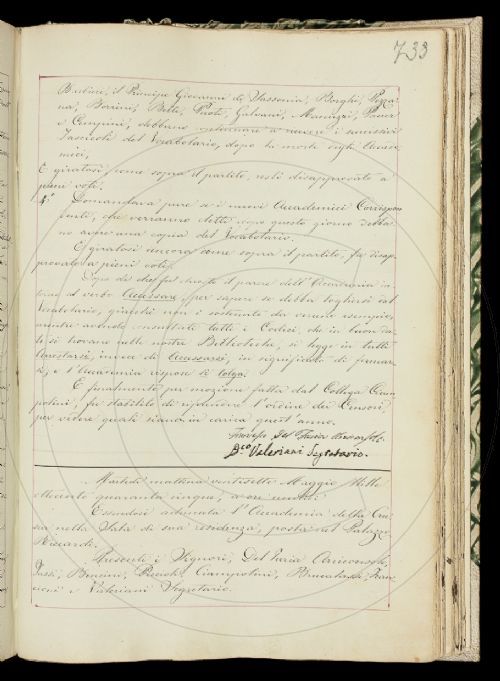 733
Barbieri, il Principe Giovanni di Sassonia, Borghi, Pezzana,
Bernini, Betti, Paoli, Galvani, Manuzzi, Parenti
e Cempini, debbano continuare a avere i successivi
fascicoli del Vocabolario, dopo la morte degli Accademici,
E giratosi come sopra il partito, restò disapprovato a
pieni voti.
4° Domandava pure se i nuovi Accademici Corrispondenti,
che verranno eletti dopo questo giorno debbano
avere una copia del Vocabolario.
E giratosi ancora come sopra il partito, fu disapprovato
a pieni voti.
Dopo di che fu chiesto il parere dell'Accademia intorno
al verbo Accessare, per sapere se debba togliersi dal
Vocabolario, giacchè non è sostenuto da verun esempio,
mentre avendo consultato tutti i Codici, che in buon dato
si trovano nelle nostre Biblioteche, si legge in tutti
Arrestarsi, invece di Accessarsi, in significato di fermarsi;
e l'Accademia rispose si tolga.
E finalmente per mozione fatta dal Collega Ciampolini,
fu stabilito di riprendere l'ordine dei Censori,
per vedere quali siano in carica quest'anno.
Del Furia Arciconsolo.
D.co Valeriani Segretario.
Martedì mattina ventisette Maggio Mille
ottocento quaranta cinque, a ore undici
Essendosi adunata l'Accademia della Crusca
nella Sala di sua residenza, posta nel Palazzo
Riccardi.
Presenti i Signori, Del Furia Arciconsolo,
Bencini, Piccioli, Ciampolini, Brucalassi,
e Valeriani Segretario.